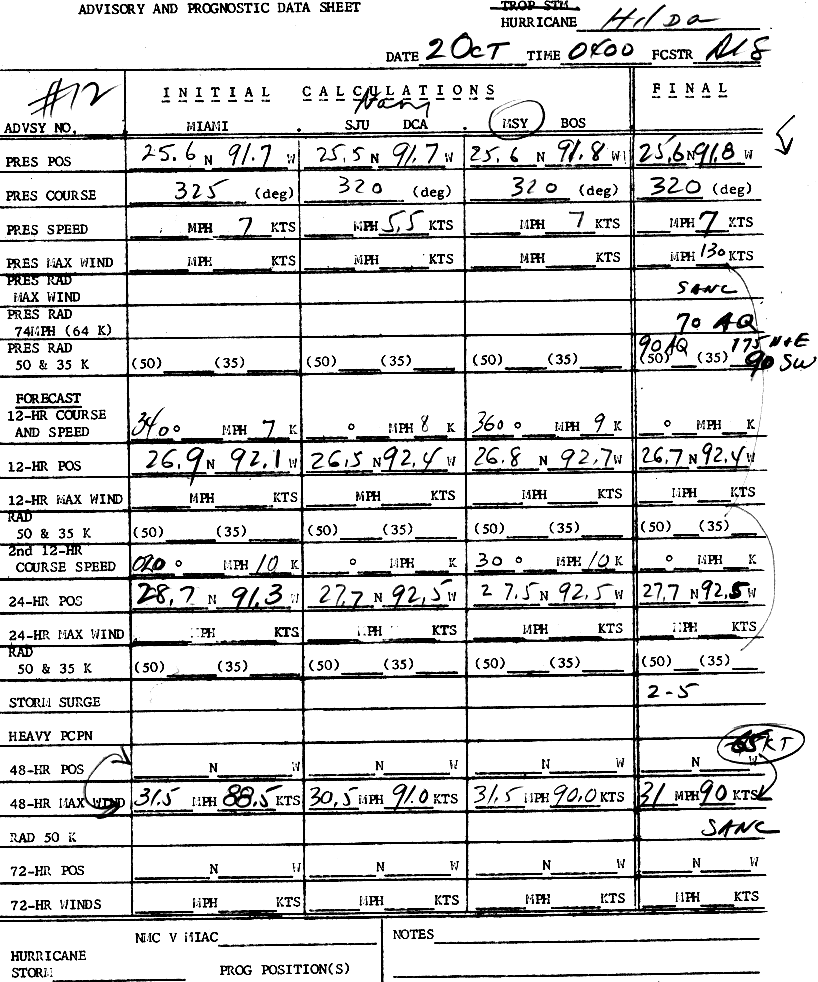 ADVISORY AND PROGNOSTIC DATA SHEET
TROP STM.
HURRICANE Hilda
DATE 2 OCT TIME 0400 FCSTR
#12 INITIAL CALCULATIONS FINAL
ADVSY NO. MIAMI . SJU DCA . MSY BOS
PRES POS 25.6 N 91.7 W 25.5 N 91.7 W 25.6 N 91.8 W 25.6 N 91.8 W
PRES COURSE 325 (deg) 320 (deg) 320 (deg) 320 (deg)
PRES SPEED MPH 7 KTS MPH 5.5 KTS MPH 7 KTS MPH 7 KTS
PRES MAX WIND MPH KTS MPH KTS MPH KTS MPH 130 KTS
PRES RAD
MAX WIND SANC
PRES RAD
74MPH (64 K) 70 AQ
PRES RAD 90 AQ 175 N+E
50 & 35 K (50) (35) (50) (35) (50) (35) (50) (35) 90 SW
FORECAST
12-HR COURSE
AND SPEED 340 ° MPH 7 K ° MPH 8 K 360 ° MPH 9 K ° MPH K
12-HR POS 26.9 N 92.1 W 26.5 N 92.4 W 26.8 N 92.7 W 26.7 N 92.4 W
12-HR MAX WIND MPH KTS MPH KTS MPH KTS MPH KTS
RAD
50 & 35 K (50) (35) (50) (35) (50) (35) (50) (35)
2nd 12-HR
COURSE SPEED 020 ° MPH 10 K ° MPH K 30 ° MPH 10 K ° MPH K
24-HR POS 28.7 N 91.3 W 27.7 N 92.5 W 27.5 N 92.5 W 27.7 N 92.5 W
24-HR MAX WIND MPH KTS MPH KTS MPH KTS MPH KTS
RAD
50 & 35 K (50) (35) (50) (35) (50) (35) (50) (35)
STORM SURGE 2-5
HEAVY PCPN
KT
48-HR POS N W N W N W N W
48-HR MAX WIND 31.5 MPH 88.5 KTS 30.5 MPH 91.0 KTS 31.5 MPH 90.0 KTS 31 MPH 90 KTS
RAD 50 K SANC
72-HR POS N W N W N W N W
72-HR WINDS MPH KTS MPH KTS MPH KTS MPH KTS
NMC V MIAC NOTES
HURRICANE
STORM PROG POSITION(S)